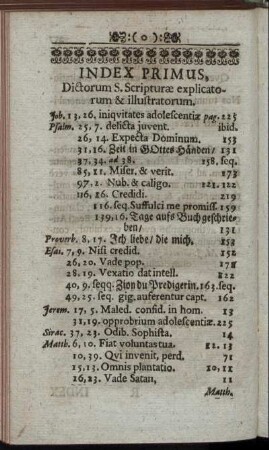 :( o ):
INDEX PRIMUS,
Dictorum S. Scripturæ explicato-
rum & illustratorum.
Job. 13. 26. iniqvitates adolescentiæ pag. 225
Psalm. 25, 7. delicta juvent. ibid.
26, 14. Expecta Dominum. 153
31, 16. Zeit in GOttes Händen/ 131
37. 34. ad 38. 158. seq.
85, 11. Miser. & verit. 173
97. 2. Nub. & caligo. 121, 122
116, 16. Credidi. 219
116. seq. Suffulci me promiss. 159
139, 16. Tage aufs Buch geschrie-
ben/ 131
Proverb. 8, 17. Ich liebe/ die mich.
Esai. 7, 9. Nisi credid. 152
26, 20. Vade pop.
28. 19. Vexatio dat intell. 822
40, 9. seqq. Zion du Predigerin. 163. seq.
49, 25. seq. gig. auferentur capt. 162
Jerem. 17. 5. Maled. confid. in hom. 13
31, 19. opprobrium adolescentiæ. 225
Sirac. 37, 23. Odib. Sophista. 14
Matth. 6, 10. Fiat voluntas tua. 12. 13
10, 39. Qvi invenit, perd. 71
15, 13. Omnis plantatio. 10, 11
16, 23. Vade Satan, 11
Matth.